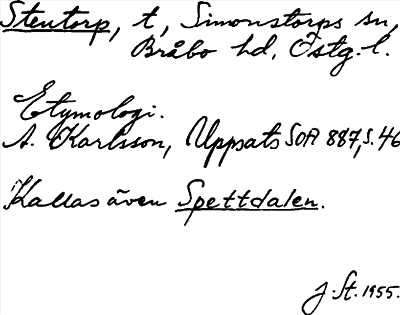 Stentorp, t, Simonstorps sn,
Bråbo hd, Östg. l.
Etymologi.
A. Karlsson, Uppsats SOA 887, s. 46
Kallas även Spettdalen.
J. St. 1955.